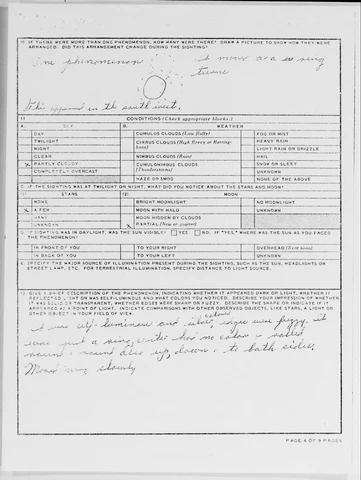 10. IF THERE WERE MORE THAN ONE PHENOMENON, HOW MANY WERE THERE? DRAW A PICTURE TO SHOW HOW THEY WERE
ARRANGED. DID THIS ARRANGEMENT CHANGE DURING THE SIGHTING?
One phenomenon
It appeared in the south west.
11. CONDITIONS (Check appropriate blocks.)
A. SKY
B. WEATHER
DAY
CUMULUS CLOUDS (Low fluffy)
FOG OR MIST
TWILIGHT
CIRRUS CLOUDS (High fleecy or Herring-bone)
HEAVY RAIN
NIGHT
LIGHT RAIN OR DRIZZLE
CLEAR
NIMBUS CLOUDS (Rain)
HAIL
X PARTLY CLOUDY
CUMULONIMBUS CLOUDS (Thunderstorms)
SNOW OR SLEET
COMPLETELY OVERCAST
UNKNOWN
HAZE OR SMOG
NONE OF THE ABOVE
C. IF THE SIGHTING WAS AT TWILIGHT OR NIGHT, WHAT DID YOU NOTICE ABOUT THE STARS AND MOON?
(1) STARS
(2) MOON
NONE
BRIGHT MOONLIGHT
NO MOONLIGHT
X A FEW
MOON WITH HALO
UNKNOWN
MANY
MOON HIDDEN BY CLOUDS
UNKNOWN
X PARTIAL (New or quarter)
D. IF SIGHTING WAS IN DAYLIGHT, WAS THE SUN VISIBLE? YES NO. IF "YES," WHERE WAS THE SUN AS YOU FACED
THE PHENOMENON?
IN FRONT OF YOU
TO YOUR RIGHT
OVERHEAD (Near noon)
IN BACK OF YOU
TO YOUR LEFT
UNKNOWN
E. SPECIFY THE MAJOR SOURCE OF ILLUMINATION PRESENT DURING THE SIGHTING, SUCH AS THE SUN, HEADLIGHTS OR
STREET LAMP, ETC. FOR TERRESTRIAL ILLUMINATION, SPECIFY DISTANCE TO LIGHT SOURCE.
12. GIVE A BRIEF DESCRIPTION OF THE PHENOMENON, INDICATING WHETHER IT APPEARED DARK OR LIGHT, WHETHER IT
REFLECTED LIGHT OR WAS SELF-LUMINOUS AND WHAT COLORS YOU NOTICED. DESCRIBE YOUR IMPRESSION OF WHETHER
IT WAS SOLID OR TRANSPARENT, WHETHER EDGES WERE SHARP OR FUZZY. DESCRIBE THE SHAPE OR INDICATE IF IT
APPEARED AS A POINT OF LIGHT. INDICATE COMPARISONS WITH OTHER OBSERVED OBJECTS, LIKE STARS, A LIGHT OR
OTHER OBJECT IN YOUR FIELD OF VIEW.
It was self-luminous and silver colored edges were fuzzy, it
was just a ring, center had no color it
round & round also up, down, & to both sides.
Moved very
PAGE 4 OF 9 PAGES